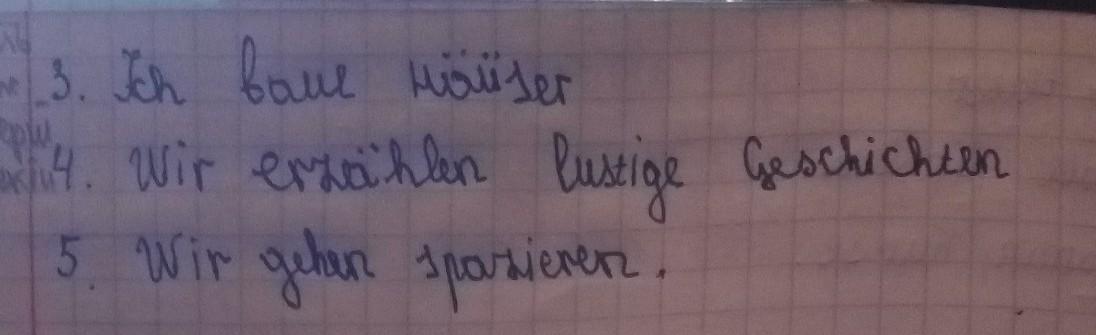 3. Ich baue Häüser
4. Wir erzählen lustige Geschichten
5. Wir gehen spazieren.